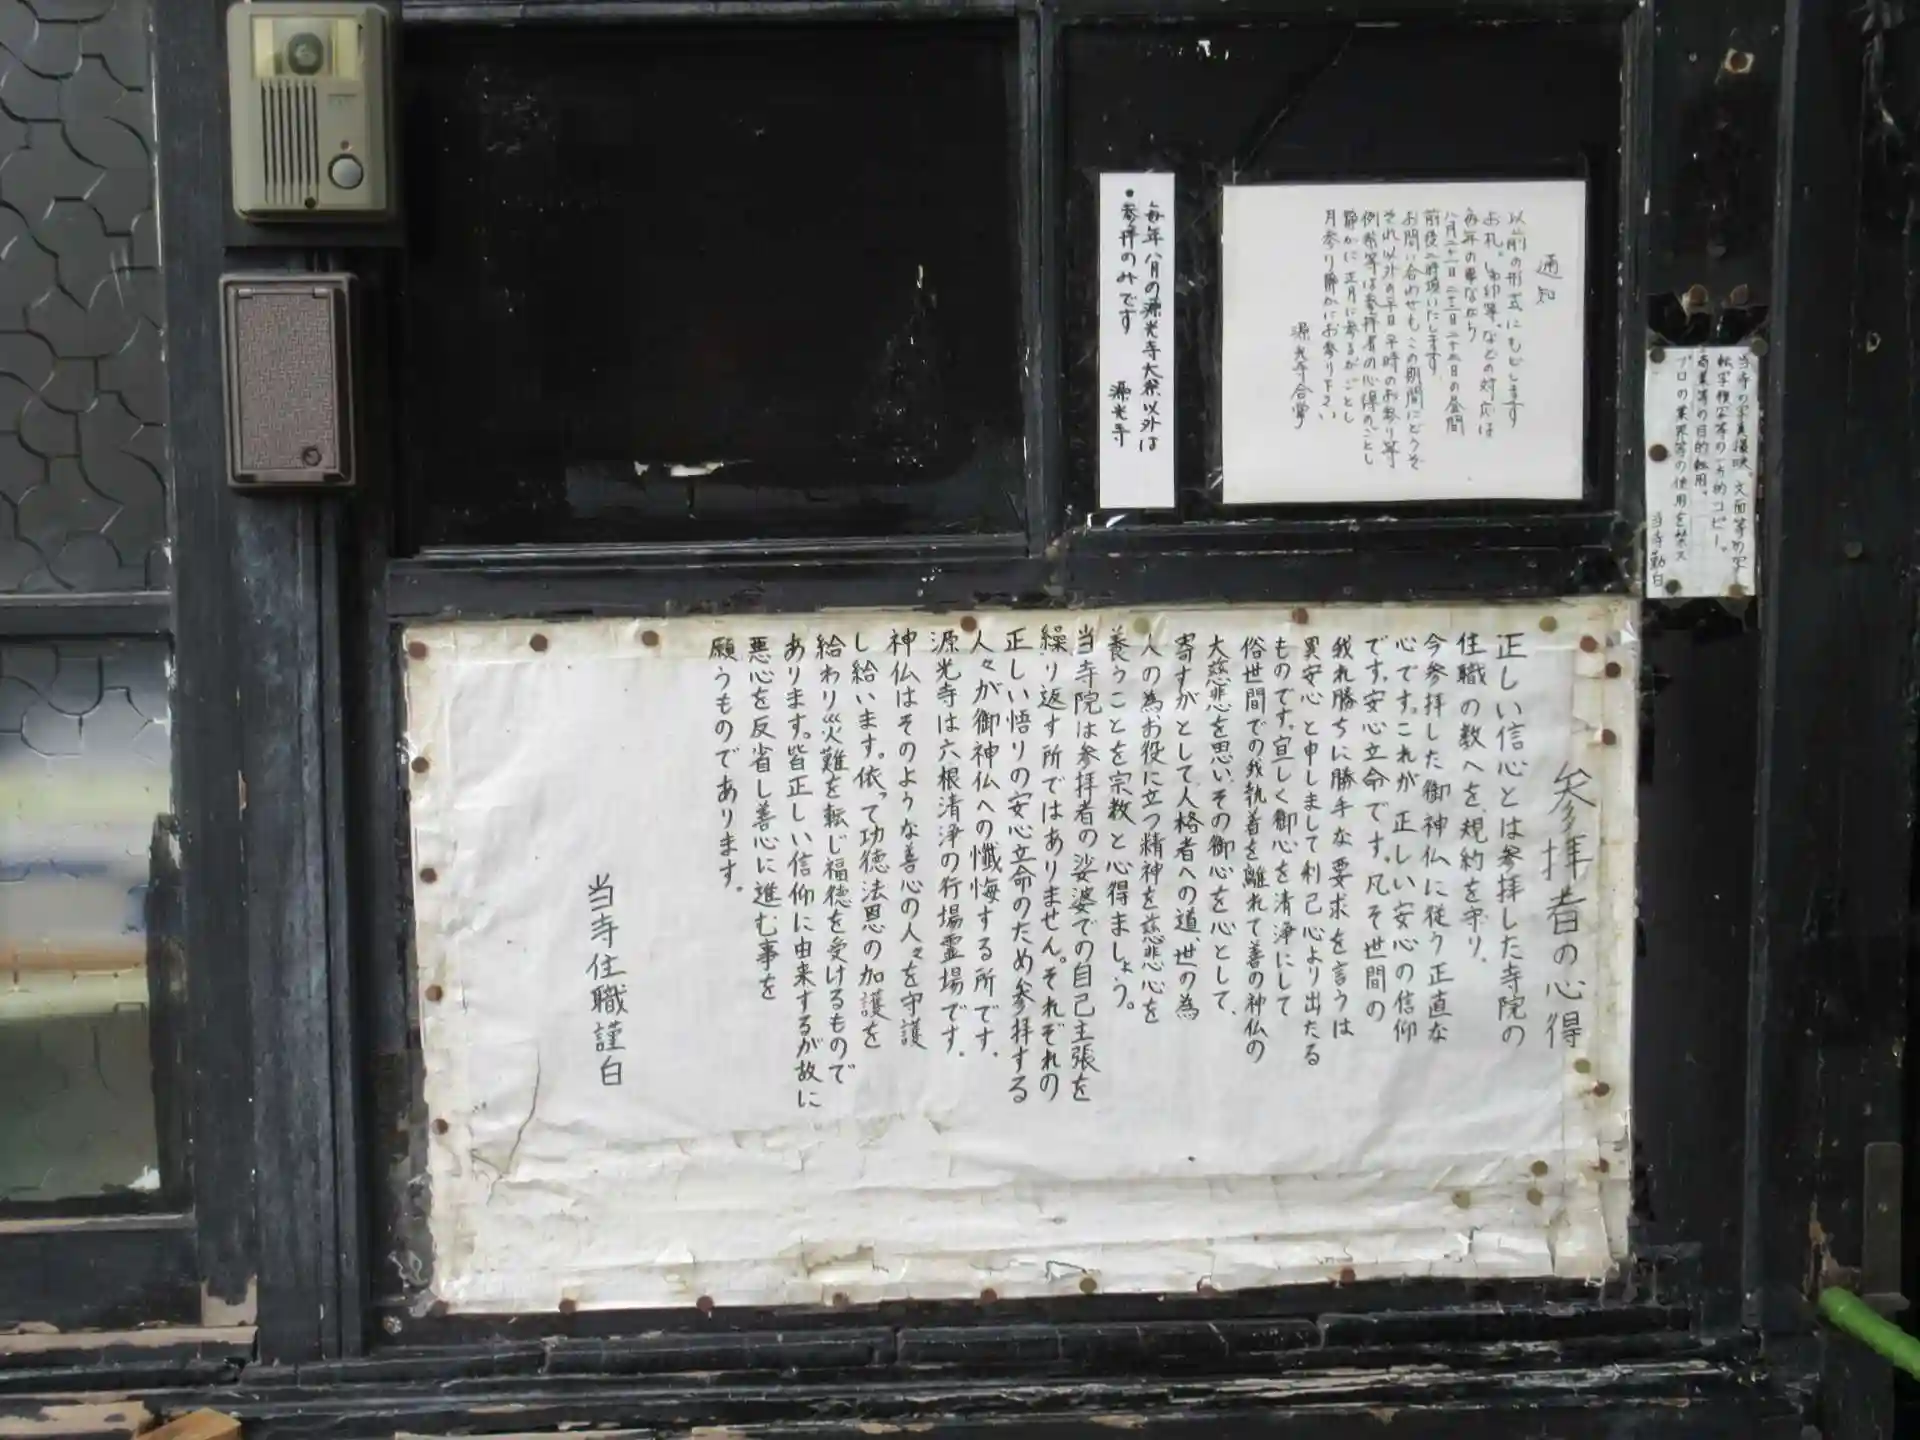 当寺の写真撮映、文面等の写
転写複写等の一方的コピー。
商業等の目的転用。
プロの業界等の使用を禁ス
当寺勤白
通知
以前の形式にもどします
お札。御印等などの対応は
毎年の事ながら
八月二十二日二十三日二十四日の昼間
前後二時頃いたします
お問い合わせもこの期間にどうぞ
それ以外の平日平時のお参り等
例祭等は参拝者の心得のごとし
静かに正月に参るがごとし
月参り静かにお参り下さい
源光寺合掌
毎年八月の源光寺大祭以外は
•参拝のみです 源光寺
参拝者の心得
正しい信心とは参拝した寺院の
住職の教へを、規約を守り。
今参拝した御神仏に従う正直な
心です。これが正しい安心の信仰
です。安心立命です。凡そ世間の
我れ勝ちに勝手な要求を言うは
異安心と申しまして利己心より出たる
ものです。宜しく御心を清浄にして
俗世間での我執着を離れて善の神仏の
大慈悲を思い、その御心を心として、
寄すがとして人格者への道、世の為
人の為お役に立つ精神を慈悲心を
養うことを宗教と心得ましょう。
当寺院は参拝者の娑婆での自己主張を
繰り返す所ではありません。それぞれの
正しい悟りの安心立命のため参拝する
人々が御神仏への懺悔する所です。
源光寺は六根清浄の行場霊場です。
神仏はそのような善心の人々を守護
し給います。依って功徳法恩の加護を
給わり災難を転じ福徳を受けるもので
あります。皆正しい信仰に由来するが故に
悪心を反省し善心に進む事を
願うものであります。
当寺住職謹白